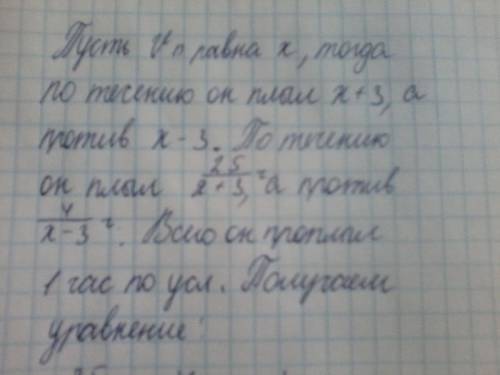 Пусть Vп равна x, тогда
по течению он плыл x+3, а
против x-3. По течению
он плыл 25/x+3 ч, а против
4/x-3 ч. Всего он проплыл
1 час по усл. Получаем
уравнение: